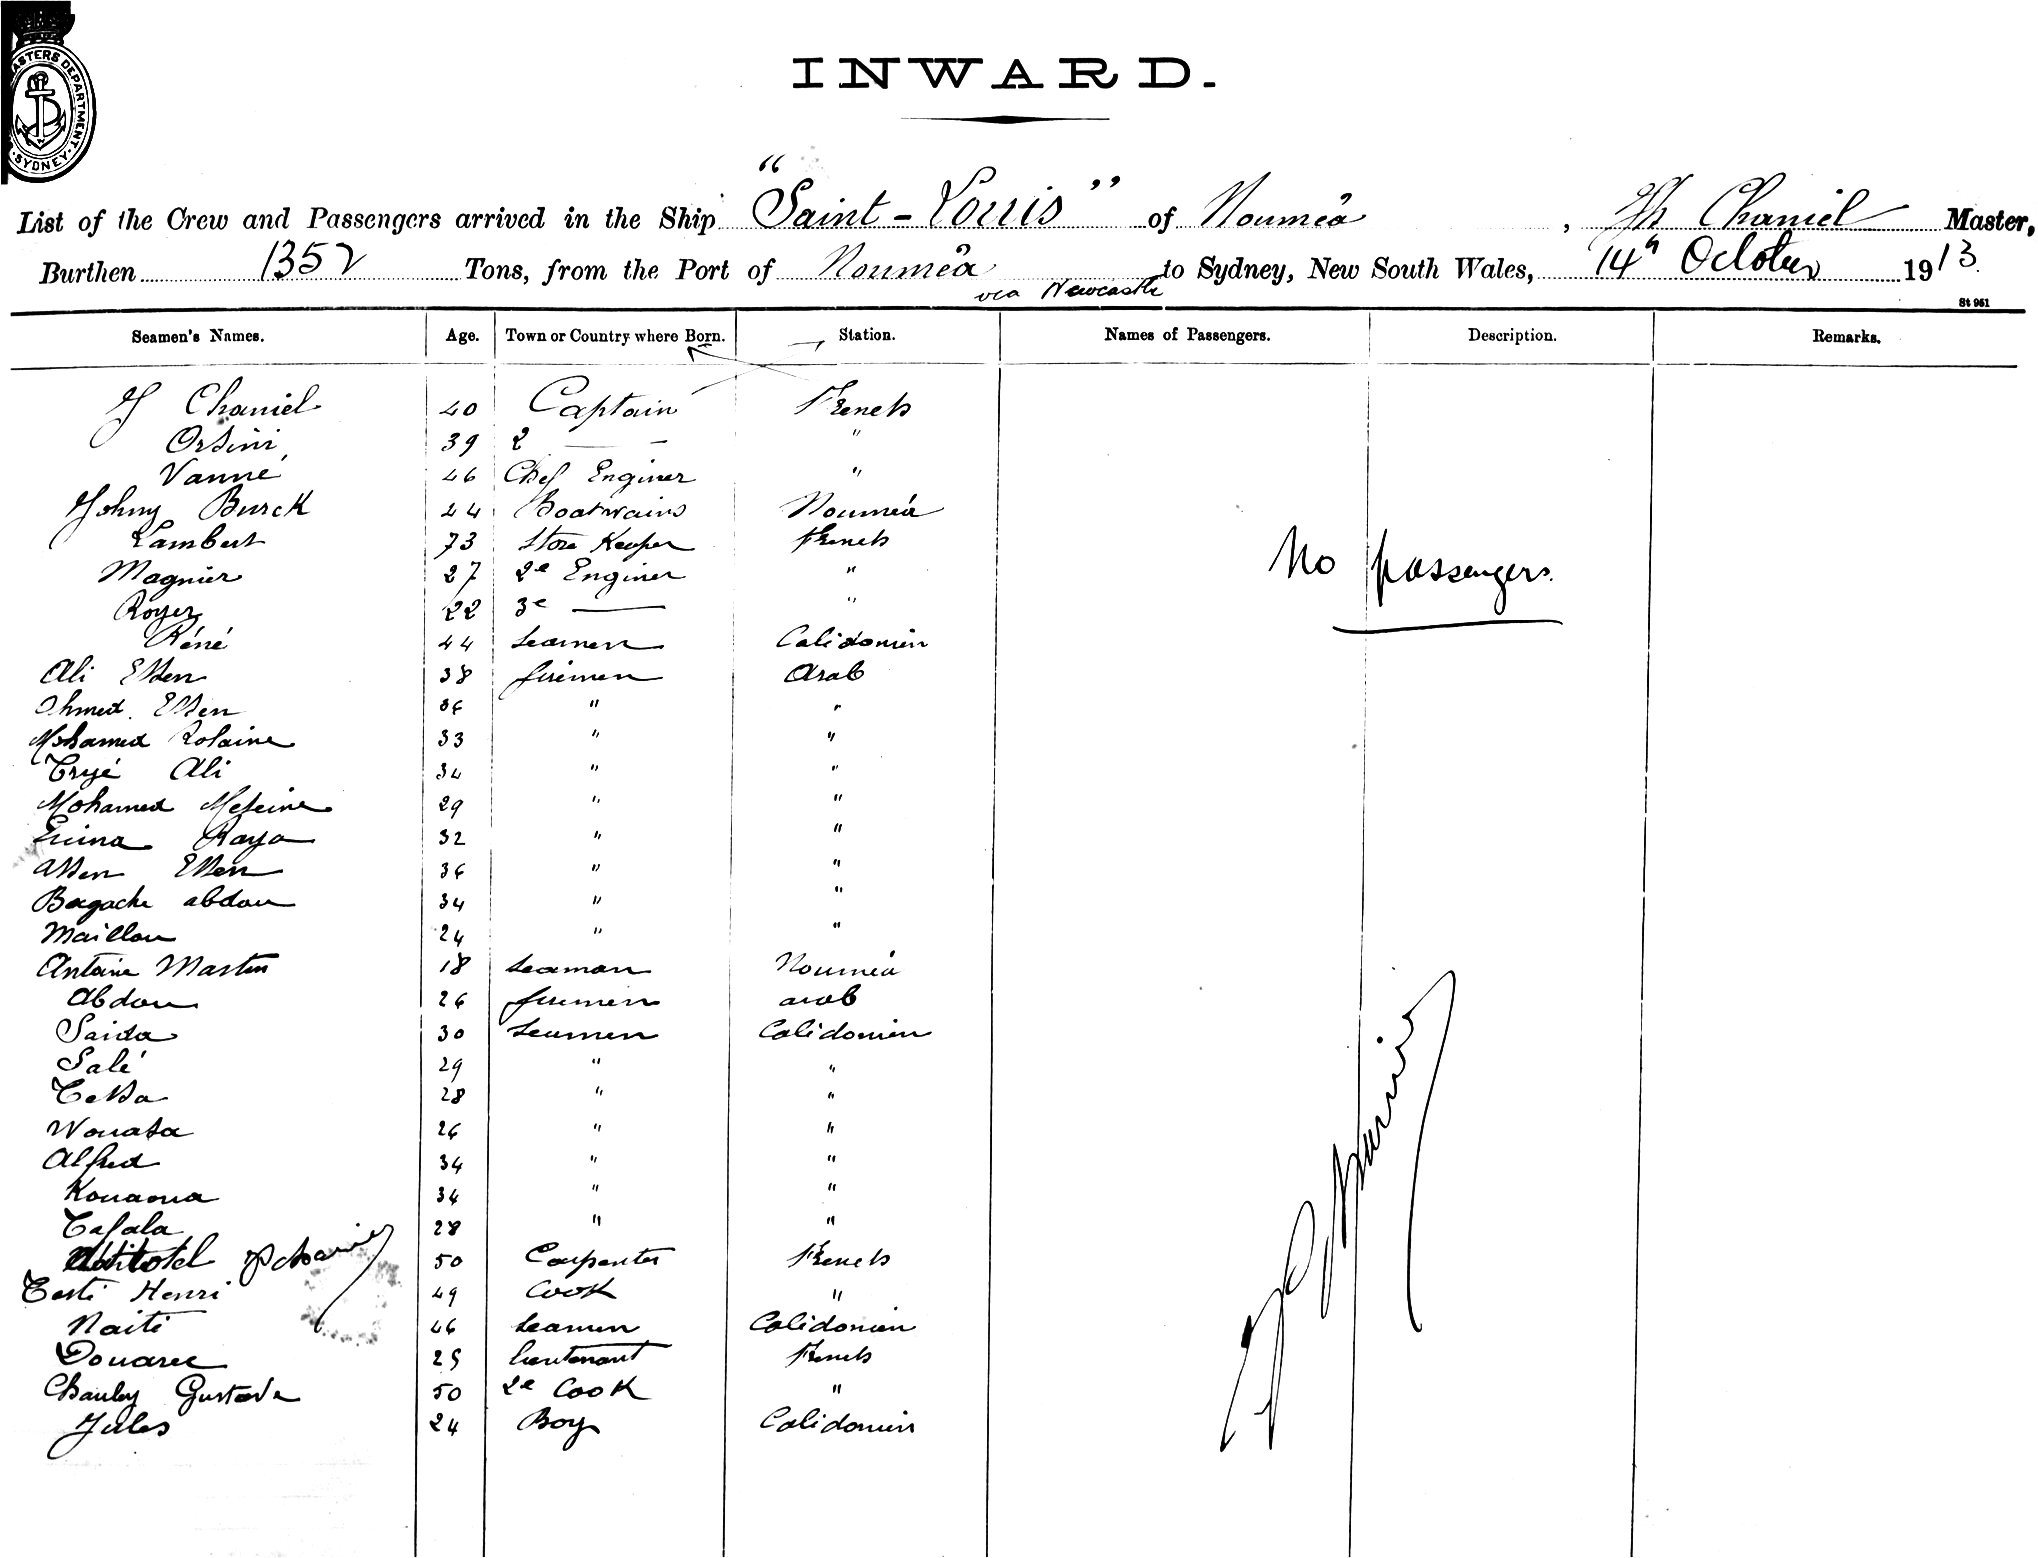 MASTERS DEPARTMENT
SYDNEY
INWARD.
List of the Crew and Passengers arrived in the Ship "Saint-Louis" of Nouméa, Chaniel Master,
Burthen 1352 Tons, from the Port of Nouméa to Sydney, New South Wales, 14th October 1913
via Newcastle
St 961
Seamen's Names. Age. Town or Country where Born. Station. Names of Passengers. Description. Remarks.
J Chaniel 40 Captain French
Orsini 39 2 — — "
Vanné 46 Chef Enginer "
Johny Burck 44 Boatwains Nouméa
Lambert 73 Store Keeper French
No passengers.
Magnier 27 2e Enginer "
Royer 22 3e — "
Réné 44 seamen Calédonien
Ali Essen 38 firemen Arab
Ahmed Essen 36 " "
Mohamed Rolaine 33 " "
Ali 34 " "
Mohamed 29 " "
Raya 32 " "
Assen Essen 36 " "
Bagache abdou 34 " "
Maillou 24 " "
Antoine Martin 18 seaman Nouméa
Abdou 26 firemen arab
Saida 30 seamen Calédonien
Salé 29 " "
28 " "
26 " "
Alfred 34 " "
Kouaoua 34 " "
28 " "
50 Carpenter French
Testi Henri 49 Cook "
Naiti 46 seamen Calidonien
Douarec 25 lieutenant French
Gustave 50 2e Cook "
Jules 24 Boy Calidonien